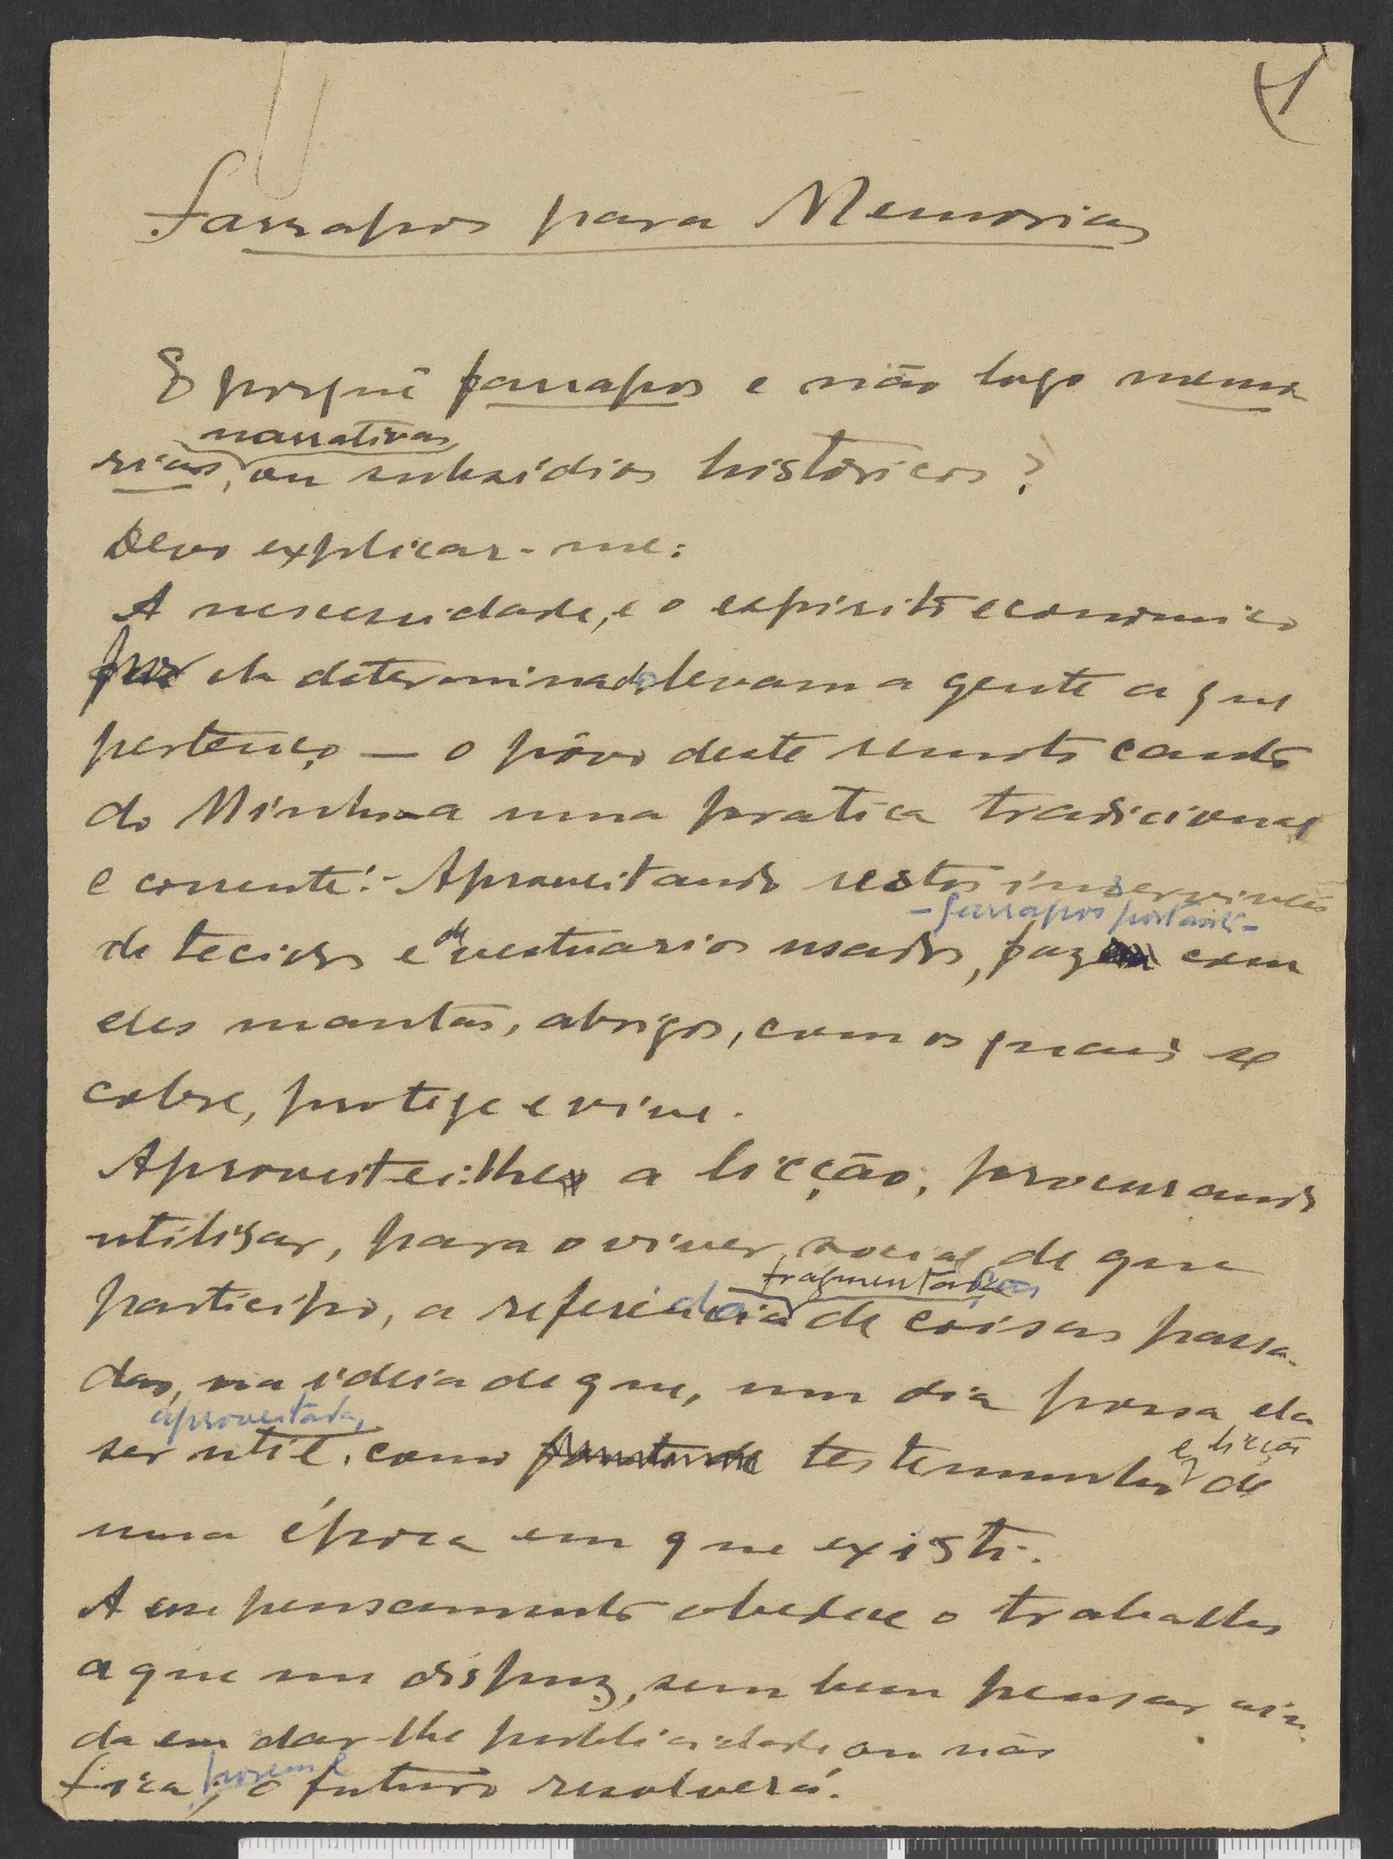 1
Farrapos para Memorias
E porquê farrapos e não logo memo-
narrativas
rias, ou subsídios históricos?
Devo explicar-me:
A necessidade, e o espirito economico
por ela determinado levam a gente a que
pertenço — o pôvo deste remoto canto
do Minho — a uma pratica tradicional
e corrente: - Aproveitando restos inserviveis
- farrapos portanto -
de tecidos e de vestuarios usados, faz com
eles mantas, abrigos, com os quais se
cobre, protege e vive.
Aproveitei-lhe a licção, procurando
utilisar, para o viver social de que
fragmentárias
participo, a referência de coisas passa-
das, na ideia de que, um dia possa ela
aproveitada,
ser util, como testemunho e licção de
uma época em que existi.
A esse pensamento obedece o trabalho
a que me dispuz, sem bem pensar ain-
da em dar-lhe publicidade ou não
fica, porem e o futuro resolverá.